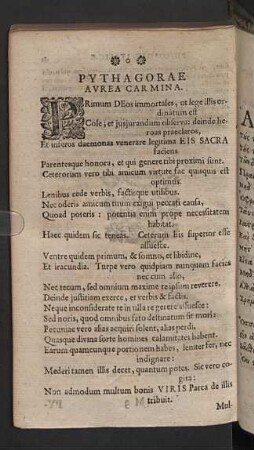 PYTHAGORAE
AVREA CARMINA.
PRimum DEos immortales, ut lege illis or-
dinatum est
Cole; et jusjurandum observa: deinde he-
roas praeclaros,
Et inferos daemonas venerare legitima EIS SACRA
faciens
Parentesque honora, et qui genere tibi proximi sunt.
Ceterorum vero tibi amicum virtute fac quisquis est
optimus.
Lenibus cede verbis, factisque utilibus.
Nec oderis amicum tuum exigui peccati causa,
Quoad poteris: potentia enim prope necessitatem
habitat.
Haec quidem sic teneto. Ceterum his superior esse
assuesce.
Ventre quidem primum, & somno, et libidine,
Et iracundia. Turpe vero quidpiam nunquam facias
nec cum alio,
Nec tecum, sed omnium maxime teipsum reverere.
Deinde justitiam exerce, et verbis & factis.
Neque inconsiderate te in ulla re gerere assuesce:
Sed noris, quod omnibus fato destinatum sit mori:
Pecuniae vero alias acquiri solent, alias perdi,
Quasque divina sorte homines calamitates habent.
Earum quamcunque portionem habes, leniter fer, nec
indignare:
Mederi tamen illis decet, quantum potes. Sic vero co-
gita:
Non admodum multum bonis VIRIS Parca de illis
tribuit.
Mul-